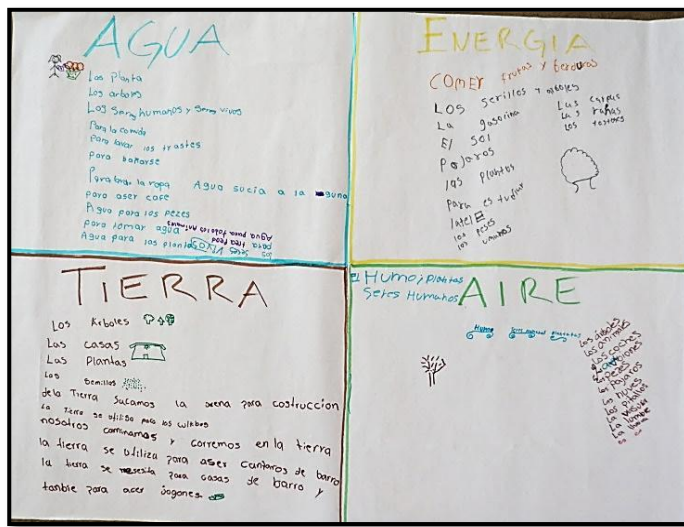 AGUA
Los planta
Los arboles
Los seres humanos y seres vivos
Para la comida
para lavar los trastes
para bañarse
Para lavar la ropa Agua sucia a la laguna
para aser cafe
Agua para los pezes
para tomar agua
Agua para todos los animales
Agua para las plantas
los seres vivos
ENERGIA
COMER frutas y berduras
LOS serillos y arboles
La gasolina
El Sol
Pajaros
las plantas
para estudiar
los peses
Las
Las ranas
los
TIERRA
Los Arboles
Las casas
Las Plantas
Las Semillas
dela Tierra Sacamos la arena para costruccion
la tierra se utiliza para los
nosotros caminamos y corremos en la tierra
la tierra se utiliza para aser cantaros de barro
la tierra se nesesita para casas de barro y
tanbie para acer jogones
AIRE
El Humo, plantas
Seres Humanos
Humo
Los arboles
los animales
los coches
los aviones
los pezes
los pajaros
las nuves
los
La basura
La lumbre
La lluvia